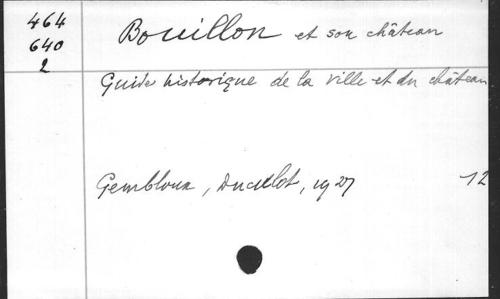 464
640
2
Bouillon et son château
Guide historique de la ville et du château
Gembloux, Duculot, 1927
12